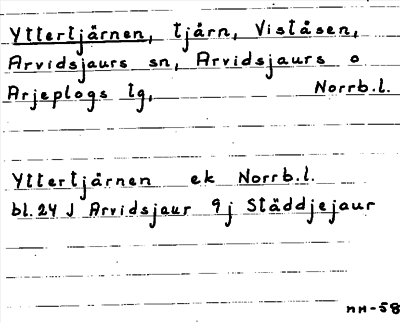 Yttertjärnen, tjärn, Viståsen,
Arvidsjaurs sn, Arvidsjaurs o
Arjeplogs tg, Norrb.l.
Yttertjärnen ek Norrb.l.
bl.24 J Arvidsjaur 9j Städdjejaur
nn-58